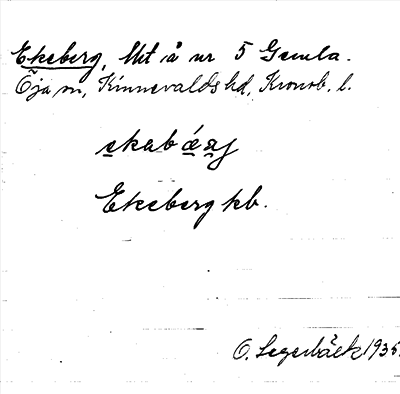 Ekeberg, lht å nr 5 Gemla.
Öja sn, Kinnevalds hd, Kronob. l.
Ekeberg kb.
O. Segerbäck 1935.